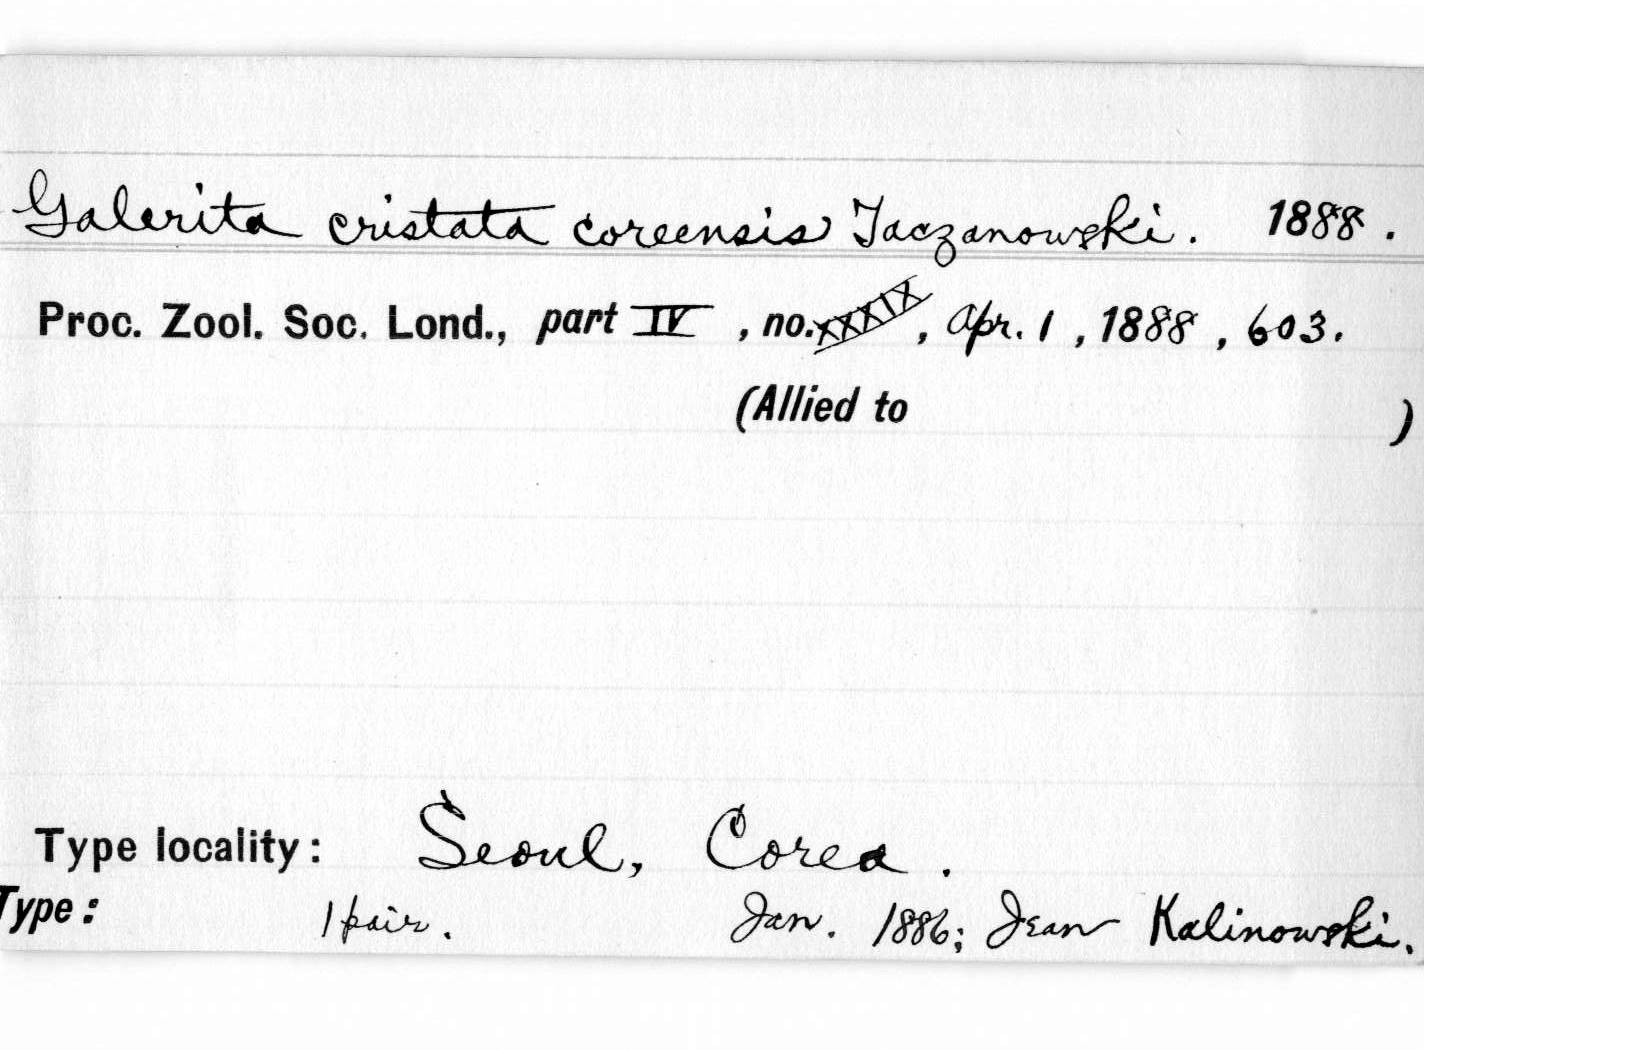 Galerita cristata coreensis Taczanowski. 1888.
Proc. Zool. Soc. Lond., part IV, no. XXXIX, Apr. 1, 1888, 603.
(Allied to )
Type locality: Seoul, Corea.
Type: 1 pair. Jan. 1886; Jean Kalinowski.